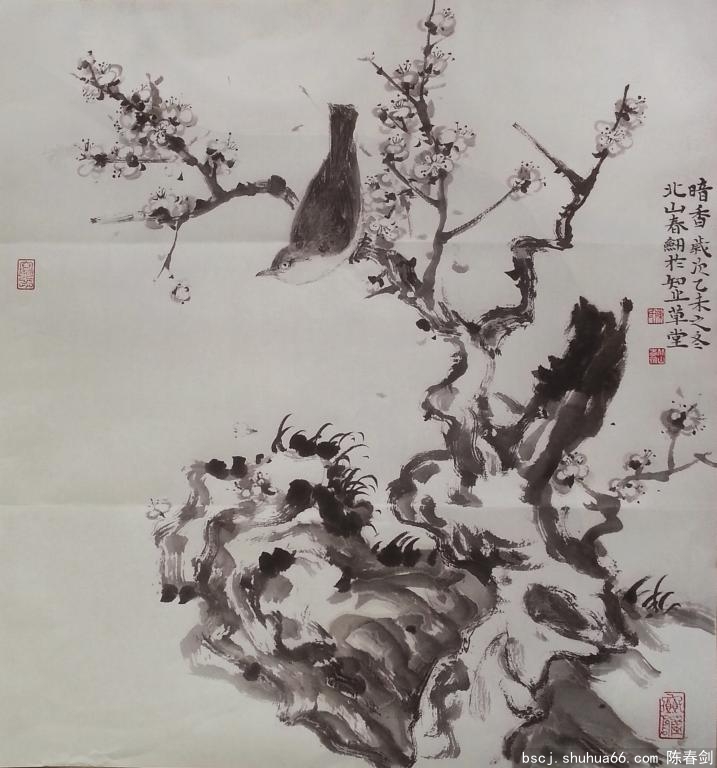 暗香歲次乙未之冬
北山春釼於知止草堂
bscj.shuhua66.com 陈春剑